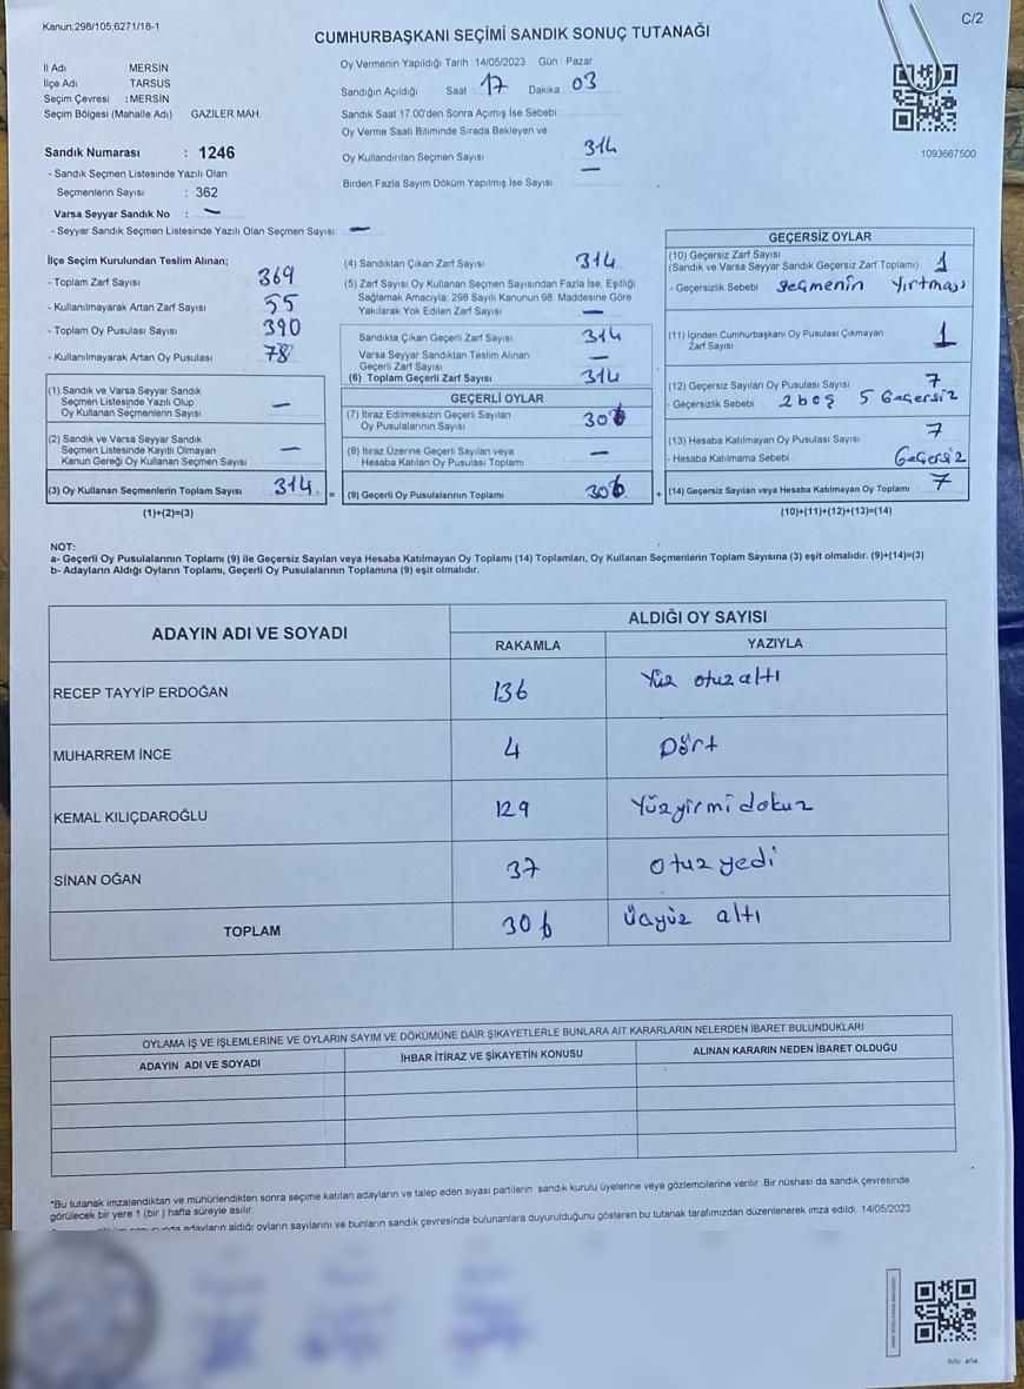 Kanun:298/105;6271/18-1
C/2
CUMHURBAŞKANI SEÇİMİ SANDIK SONUÇ TUTANAĞI
İl Adı MERSİN
İlçe Adı TARSUS
Seçim Çevresi : MERSİN
Seçim Bölgesi (Mahalle Adı) GAZİLER MAH.
Sandık Numarası : 1246
- Sandık Seçmen Listesinde Yazılı Olan
Seçmenlerin Sayısı : 362
Varsa Seyyar Sandık No : —
- Seyyar Sandık Seçmen Listesinde Yazılı Olan Seçmen Sayısı: —
Oy Vermenin Yapıldığı Tarih :14/05/2023 Gün : Pazar
Sandığın Açıldığı Saat 17 Dakika 03
Sandık Saat 17.00'den Sonra Açımış İse Sebebi
Oy Verme Saati Bitiminde Sırada Bekleyen ve
Oy Kullandırılan Seçmen Sayısı 314
Birden Fazla Sayım Döküm Yapılmış İse Sayısı —
1093667500
İlçe Seçim Kurulundan Teslim Alınan;
- Toplam Zarf Sayısı 369
- Kullanılmayarak Artan Zarf Sayısı 55
- Toplam Oy Pusulası Sayısı 390
- Kullanılmayarak Artan Oy Pusulası 78
(1) Sandık ve Varsa Seyyar Sandık
Seçmen Listesinde Yazılı Olup
Oy Kullanan Seçmenlerin Sayısı —
(2) Sandık ve Varsa Seyyar Sandık
Seçmen Listesinde Kayıtlı Olmayan
Kanun Gereği Oy Kullanan Seçmen Sayısı —
(3) Oy Kullanan Seçmenlerin Toplam Sayısı 314 =
(1)+(2)=(3)
(4) Sandıktan Çıkan Zarf Sayısı 314
(5) Zarf Sayısı Oy Kullanan Seçmen Sayısından Fazla İse, Eşitliği
Sağlamak Amacıyla; 298 Sayılı Kanunun 98. Maddesine Göre
Yakılarak Yok Edilen Zarf Sayısı —
Sandıkta Çıkan Geçerli Zarf Sayısı 314
Varsa Seyyar Sandıktan Teslim Alınan
Geçerli Zarf Sayısı —
(6) Toplam Geçerli Zarf Sayısı 314
GEÇERLİ OYLAR
(7) İtiraz Edilmeksizin Geçerli Sayılan
Oy Pusulalarının Sayısı 306
(8) İtiraz Üzerine Geçerli Sayılan veya
Hesaba Katılan Oy Pusulası Toplamı —
(9) Geçerli Oy Pusulalarının Toplamı 306 +
GEÇERSİZ OYLAR
(10) Geçersiz Zarf Sayısı
(Sandık ve Varsa Seyyar Sandık Geçersiz Zarf Toplamı) 1
- Geçersizlik Sebebi seçmenin yırtması
(11) İçinden Cumhurbaşkanı Oy Pusulası Çıkmayan
Zarf Sayısı 1
(12) Geçersiz Sayılan Oy Pusulası Sayısı 7
- Geçersizlik Sebebi 2 boş 5 Geçersiz
(13) Hesaba Katılmayan Oy Pusulası Sayısı 7
- Hesaba Katılmama Sebebi Geçersiz
(14) Geçersiz Sayılan veya Hesaba Katılmayan Oy Toplamı 7
(10)+(11)+(12)+(13)=(14)
NOT:
a- Geçerli Oy Pusulalarının Toplamı (9) ile Geçersiz Sayılan veya Hesaba Katılmayan Oy Toplamı (14) Toplamları, Oy Kullanan Seçmenlerin Toplam Sayısına (3) eşit olmalıdır. (9)+(14)=(3)
b- Adayların Aldığı Oyların Toplamı, Geçerli Oy Pusulalarının Toplamına (9) eşit olmalıdır.
ADAYIN ADI VE SOYADI
ALDIĞI OY SAYISI
RAKAMLA YAZIYLA
RECEP TAYYİP ERDOĞAN 136 Yüz otuz altı
MUHARREM İNCE 4 Dört
KEMAL KILIÇDAROĞLU 129 Yüzyirmi dokuz
SİNAN OĞAN 37 otuz yedi
TOPLAM 306 üçyüz altı
OYLAMA İŞ VE İŞLEMLERİNE VE OYLARIN SAYIM VE DÖKÜMÜNE DAİR ŞİKAYETLERLE BUNLARA AİT KARARLARIN NELERDEN İBARET BULUNDUKLARI
ADAYIN ADI VE SOYADI İHBAR İTİRAZ VE ŞİKAYETİN KONUSU ALINAN KARARIN NEDEN İBARET OLDUĞU
*Bu tutanak imzalandıktan ve mühürlendikten sonra seçime katılan adayların ve talep eden siyasi partilerin sandık kurulu üyelerine veya gözlemcilerine verilir. Bir nüshası da sandık çevresinde
görülecek bir yere 1 (bir) hafta süreyle asılır.
adayların aldığı oyların sayılarını ve bunların sandık çevresinde bulunanlara duyurulduğunu gösteren bu tutanak tarafımızdan düzenlenerek imza edildi. 14/05/2023